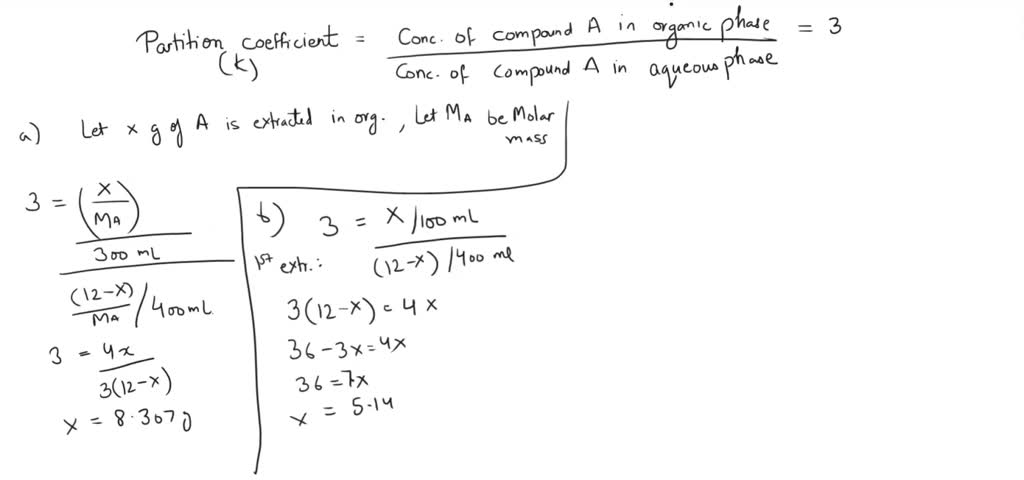 Partition coefficient = Conc. of compound A in organic phase = 3
(K) Conc. of compound A in aqueous phase
a) Let x g of A is extracted in org., Let MA be Molar
mass
3 = (x
MA)
300 mL
(12-x)
MA / 400mL
3 = 4x
3(12-x)
x = 8.307g
b) 3 = x/100 mL
1st extr.: (12-x)/400 ml
3(12-x) = 4x
36-3x=4x
36=7x
x = 5.14